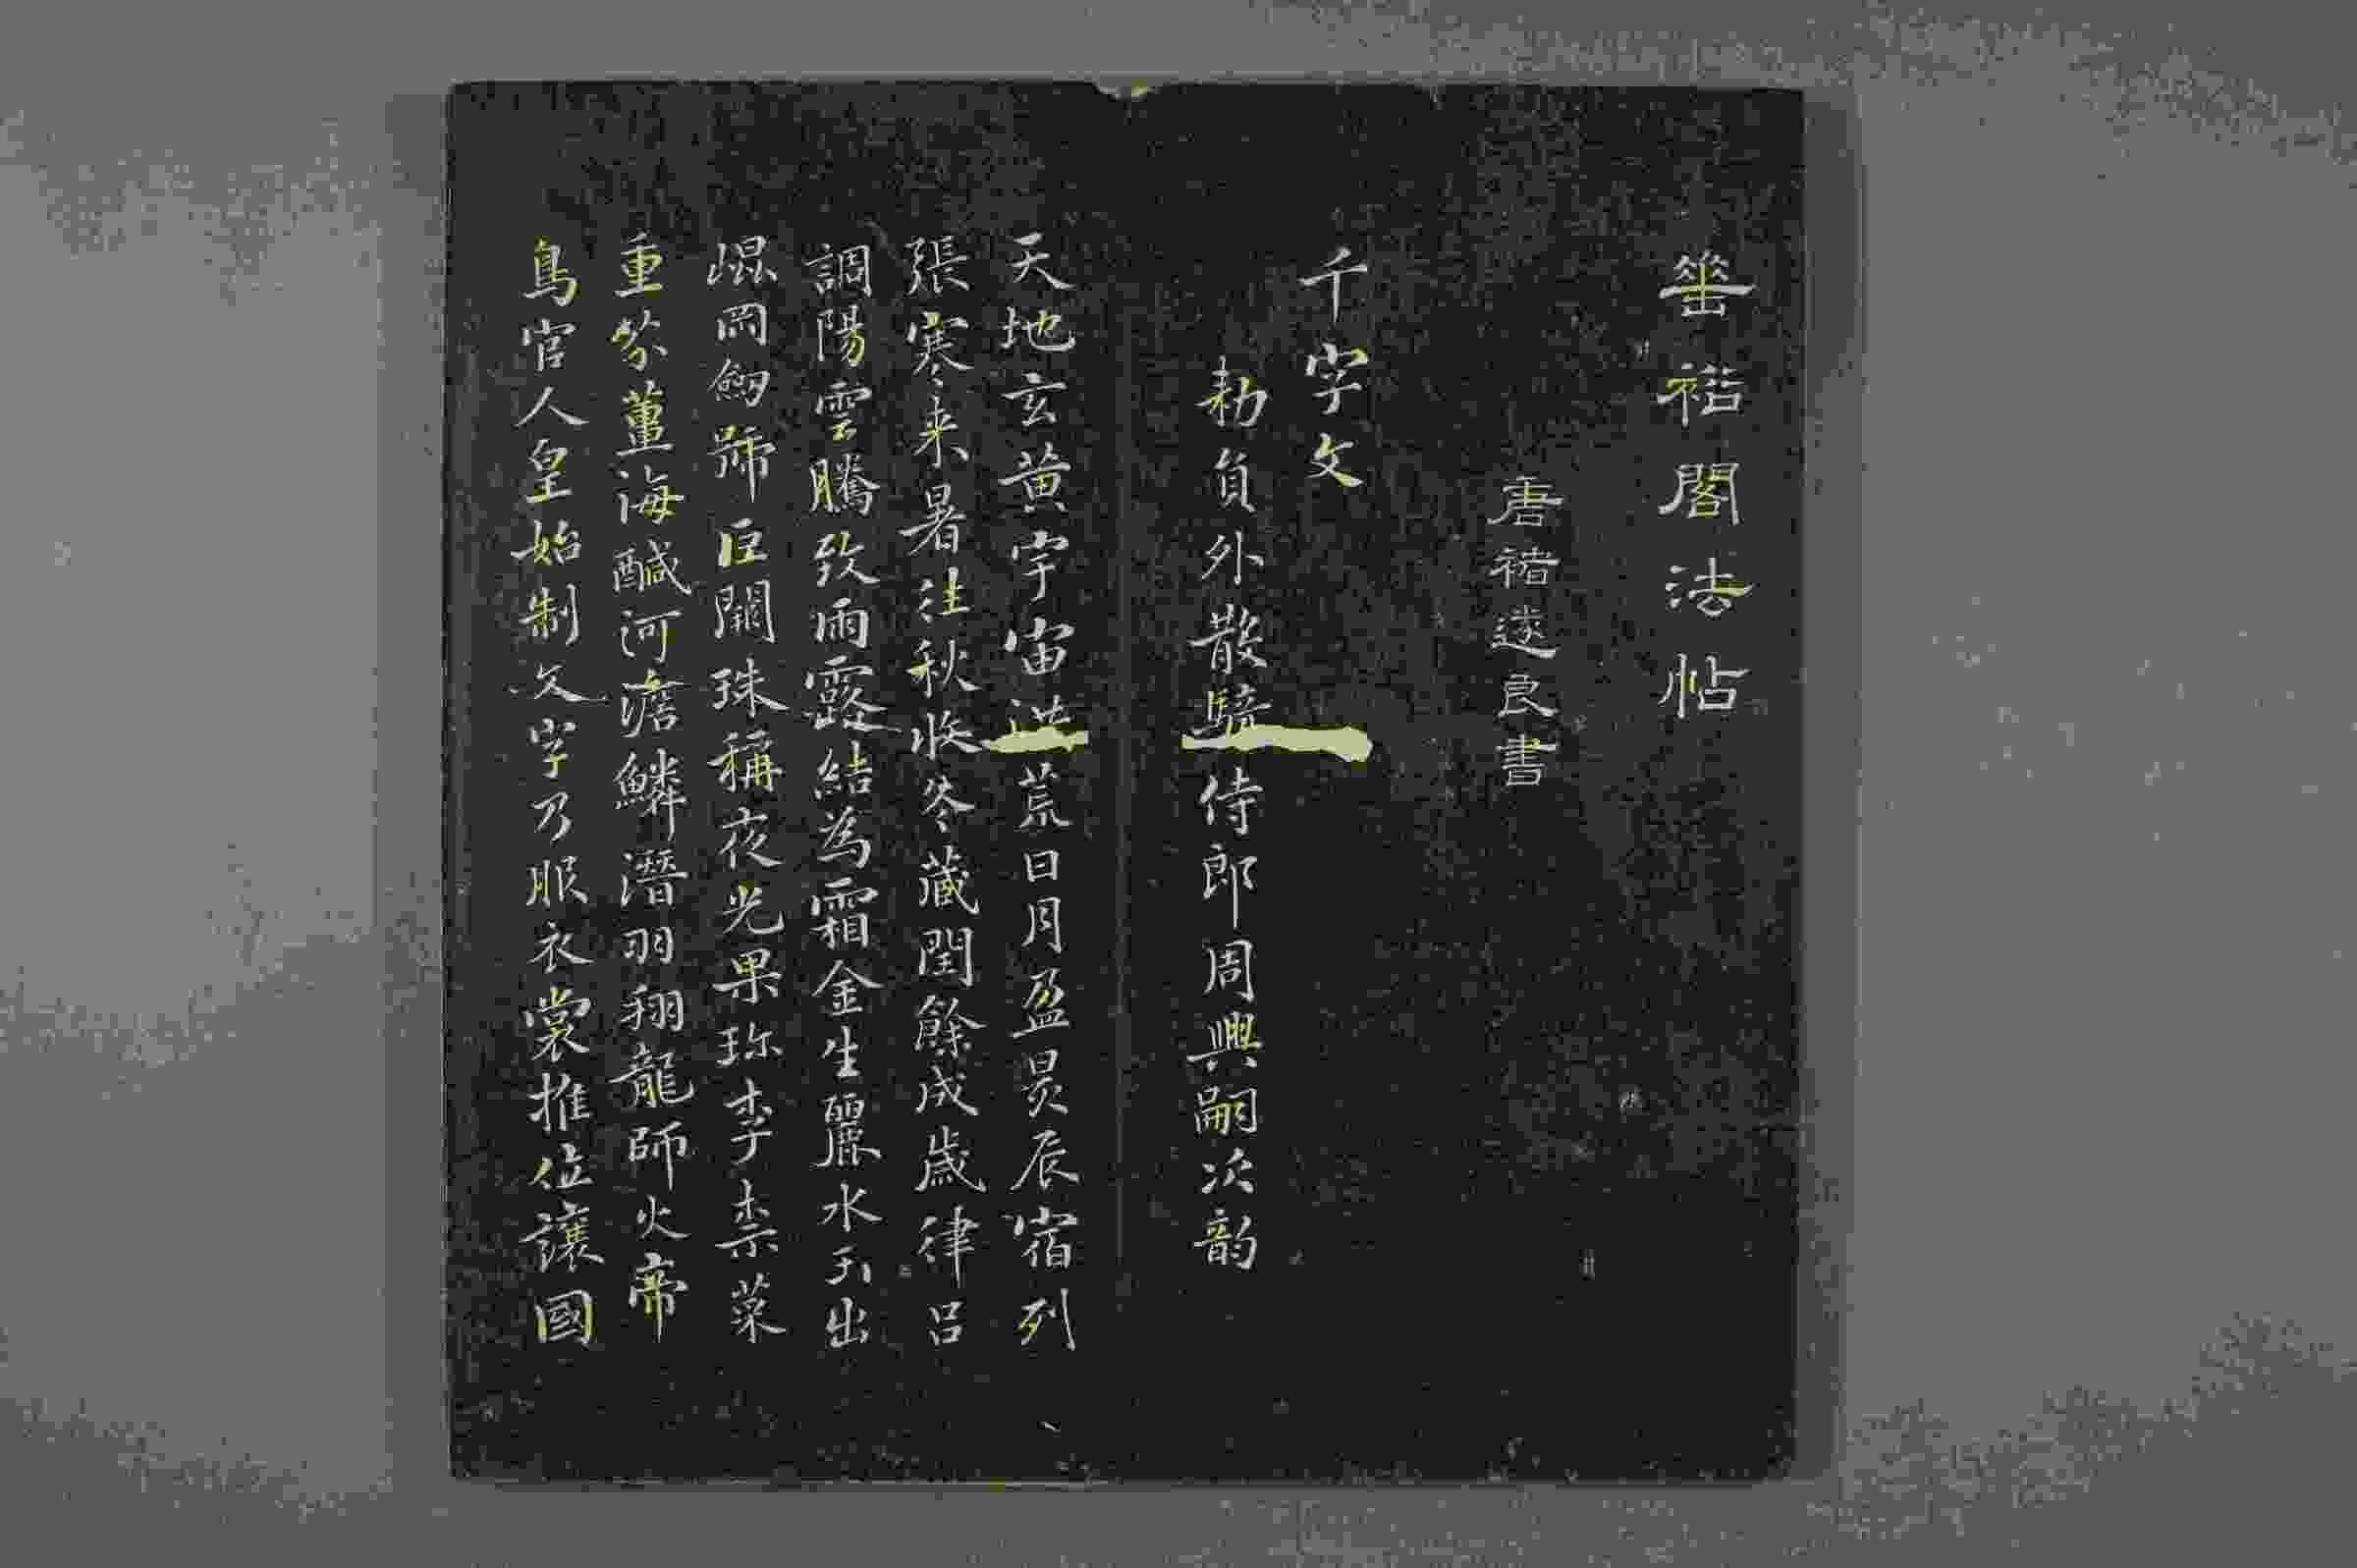 垂裕閣法帖
唐褚遂良書
千字文
勑貟外散騎侍郎周興嗣次韵
天地玄黄宇宙洪荒日月盈昃辰宿列
張寒来暑往秋收冬藏閏餘成歲律呂
調陽雲騰致雨露結為霜金生麗水玉出
崐岡劒號巨闕珠稱夜光果珎李柰菜
重芥薑海醎河澹鱗潛羽翔龍師火帝
鳥官人皇始制文字乃服衣裳推位讓國